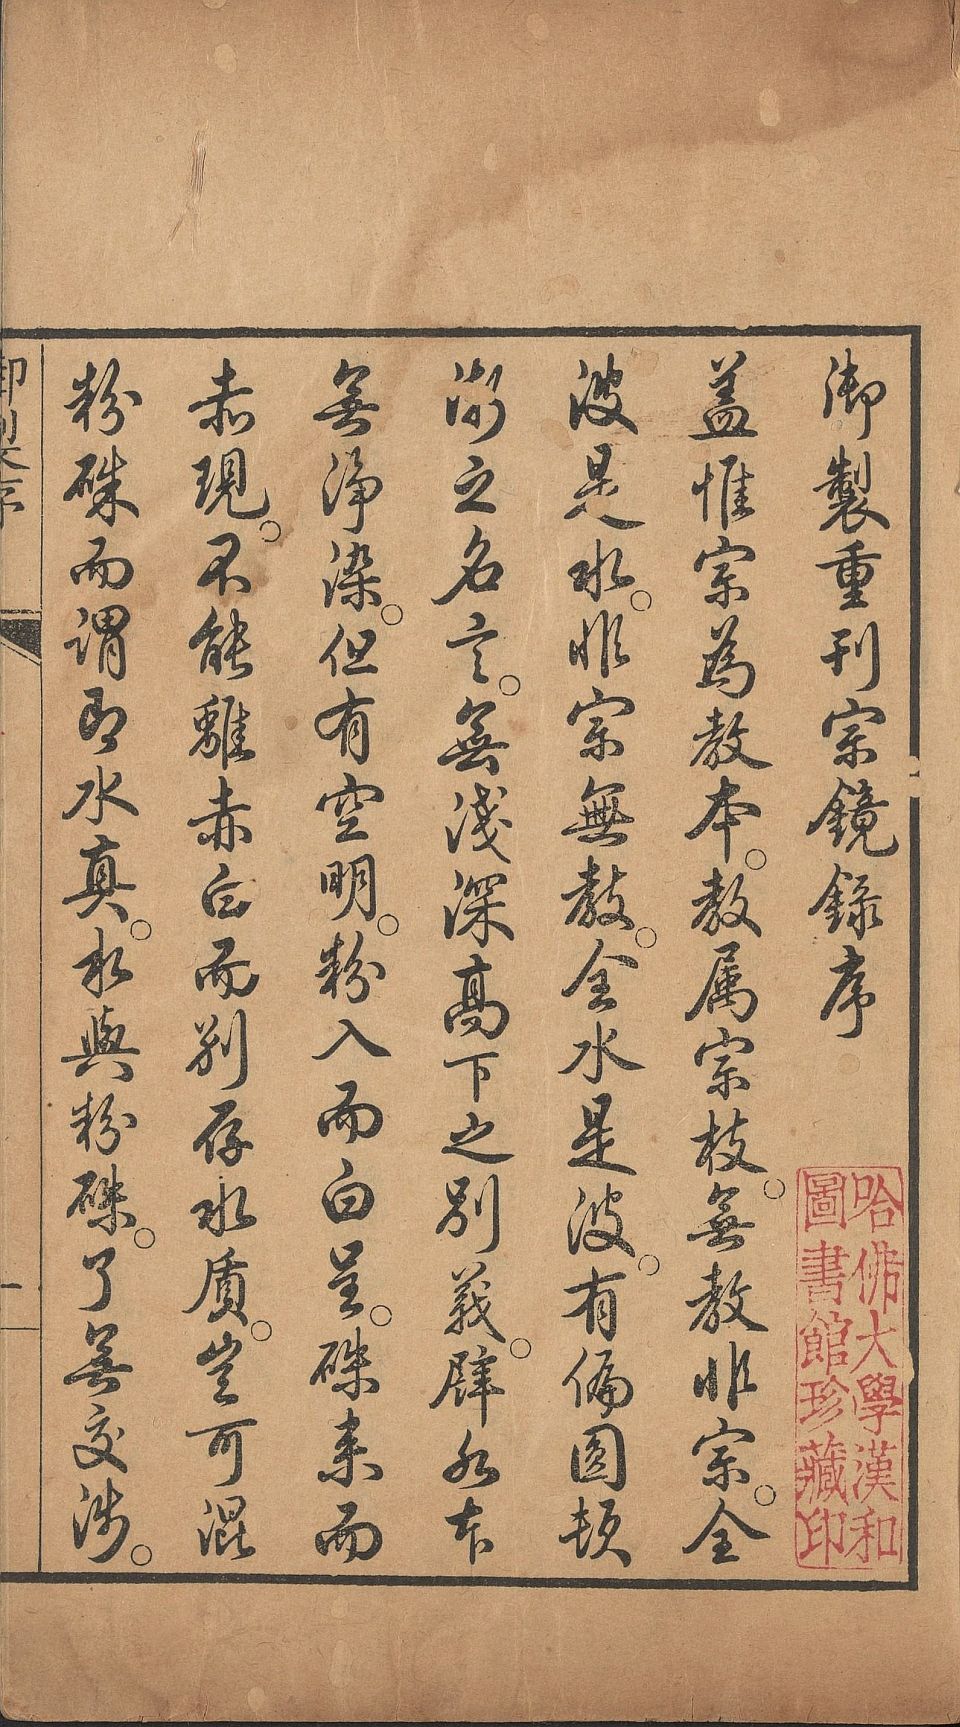 御製重刊宗鏡錄序
蓋惟宗為教本。教属宗枝。無教非宗。全
波是水。非宗無教。全水是波。有偏圓頓
漸之名言。無淺深高下之別義。譬水本
無淨染。但有空明。粉入而白呈。硃来而
赤現。不能離赤白而別存水質。豈可混
粉硃而謂即水真。水與粉硃。了無交涉。
御製序
一
哈佛大學漢和
圖書館珍藏印